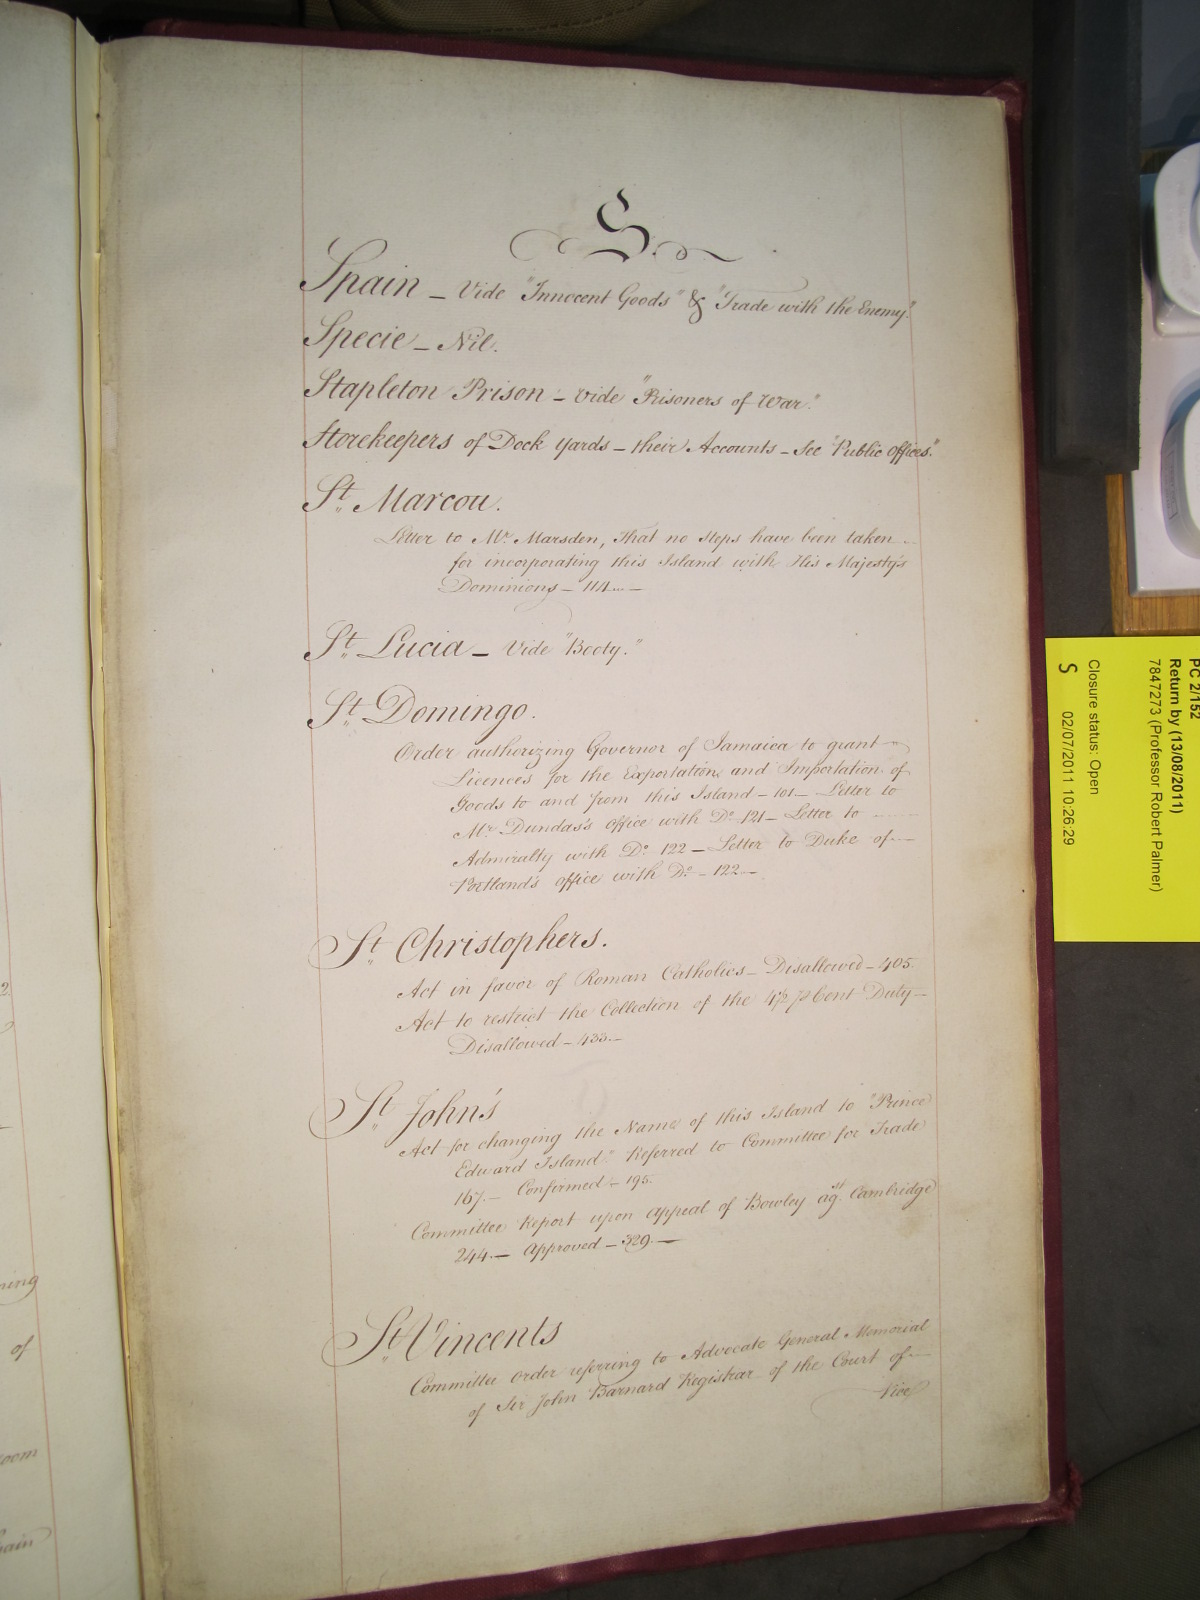 S.
Spain - Vide "Innocent Goods" & "Trade with the Enemy."
Specie - Nil.
Stapleton Prison - vide "Prisoners of War."
Storekeepers of Dock Yards - their Accounts - See "Public Offices."
St. Marcou.
Letter to Mr. Marsden, that no steps have been taken
for incorporating this Island with His Majesty's
Dominions - 114 -
St. Lucia - Vide "Booty."
St. Domingo.
Order authorizing Governor of Jamaica to grant
Licences for the Exportation and Importation of
Goods to and from this Island - 101 - Letter to
Mr. Dundas's office with Do. 121 - Letter to
Admiralty with Do. 122 - Letter to Duke of
Portland's office with Do. - 122 -
St. Christophers.
Act in favor of Roman Catholics - Disallowed - 405.
Act to restrict the Collection of the 4½ p Cent Duty -
Disallowed - 433 -
St. John's
Act for changing the Name of this Island to "Prince
Edward Island." Referred to Committee for Trade
167. - Confirmed - 195.
Committee Report upon appeal of Bowley agst. Cambridge
244. - Approved - 329. -
St. Vincents
Committee order referring to Advocate General Memorial
of Sir John Barnard Registrar of the Court of
Vice
2
ning
of
room
hain
PC 2/152
Return by (13/08/2011)
7847273 (Professor Robert Palmer)
Closure status: Open
S 02/07/2011 10:26:29